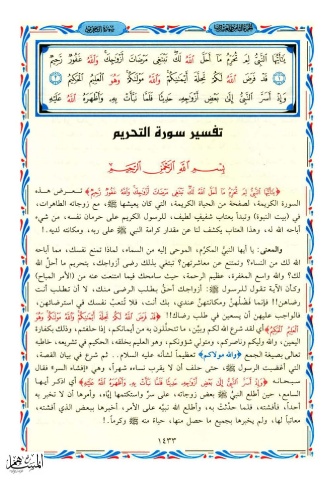 يَٰٓأَيُّهَا ٱلنَّبِىُّ لِمَ تُحَرِّمُ مَآ أَحَلَّ ٱللَّهُ لَكَ تَبْتَغِى مَرْضَاتَ أَزْوَٰجِكَ وَٱللَّهُ غَفُورٌ رَّحِيمٌ
قَدْ فَرَضَ ٱللَّهُ لَكُمْ تَحِلَّةَ أَيْمَٰنِكُمْ وَٱللَّهُ مَوْلَىٰكُمْ وَهُوَ ٱلْعَلِيمُ ٱلْحَكِيمُ
وَإِذْ أَسَرَّ ٱلنَّبِىُّ إِلَىٰ بَعْضِ أَزْوَٰجِهِۦ حَدِيثًا فَلَمَّا نَبَّأَتْ بِهِۦ وَأَظْهَرَهُ ٱللَّهُ عَلَيْهِ
تفسير سورة التحريم
بسم الله الرحمن الرحيم
﴿يَا أَيُّهَا النَّبِيُّ لِمَ تُحَرِّمُ مَا أَحَلَّ اللهُ لَكَ تَبْتَغِي مَرْضَاتَ أَزْوَاجِكَ وَاللهُ غَفُورٌ رَحِيمٌ﴾ تعرض هذه
السورة الكريمة، لصفحة من الحياة الكريمة، التي كان يعيشها ﷺ، مع زوجاته الطاهرات،
في (بيت النبوة) وتبدأ بعتاب شفيف لطيف، للرسول الكريم على حرمان نفسه، من شيء
أباحه الله له، وهذا العتاب يكشف لنا عن مقدار كرامة النبي ﷺ على ربه، ومكانته لديه.!
والمعنى: يا أيها النبيُّ المكرَّم، الموحى إليه من السماء، لماذا تمنع نفسك، مما أباحه
الله لك من النساء؟ وتمتنع عن معاشرتهن؟ تبتغي بذلك رضى أزواجك، بتحريم ما أحلَّ الله
لك؟ والله واسع المغفرة، عظيم الرحمة، حيث سامحك فيما امتنعت عنه من (الأمر المباح)
وكأن الآية تقول للرسول ﷺ: أزواجك أحقُّ بطلب الرضى منك، لا أن تطلب أنت
رضاهن!! فإنما فضلُهنَّ ومكانتهنَّ عندي، بك أنت، فلا تُتعب نفسك في استرضائهن،
فالواجب عليهن أن يسعين في طلب رضاك!! ﴿قَدْ فَرَضَ اللهُ لَكُمْ تَحِلَّةَ أَيْمَانِكُمْ وَاللهُ مَوْلَاكُمْ وَهُوَ
الْعَلِيمُ الْحَكِيمُ﴾ أي لقد شرع الله لكم وبيَّن، ما تتحلَّلون به من أيمانكم، إذا حلفتم، وذلك بكفارة
اليمين، والله وليكم وناصركم، ومتولي شؤونكم، وهو العليم بخلقه، الحكيم في تشريعه، خاطبه
تعالى بصيغة الجمع ﴿والله مولاكم﴾ تعظيماً لشأنه عليه السلام.. ثم شرع في بيان القصة،
التي أغضبت الرسول ﷺ، حتى حلف أن لا يقرب نساءه شهراً، وهي «إفشاء السر» فقال
سبحانه ﴿وَإِذْ أَسَرَّ النَّبِيُّ إِلَى بَعْضِ أَزْوَاجِهِ حَدِيثًا فَلَمَّا نَبَّأَتْ بِهِ وَأَظْهَرَهُ اللهُ عَلَيْهِ﴾ أي اذكر أيها
السامع، حين أطلع النبيُّ ﷺ بعض زوجاته، على سرٍّ واستكتمها إيَّاه، وأمرها أن لا تخبر به
أحداً، فأفشته، فلما حدَّثت به، وأطلع الله نبيَّه على الأمر، أخبرها ببعض الذي أفشته،
معاتباً لها، ولم يخبرها بجميع ما حصل منها، حياءً منه ﷺ وكرماً.!
١٤٣٣